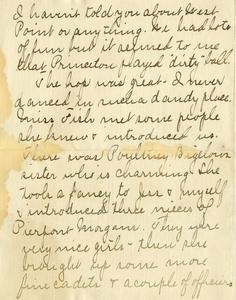 I haven't told you about West
Point or anything. We had lots
of fun but it seemed to me
that Princeton played dirty ball.
The hop was great - I never
danced in such a dandy place.
Miss Fish met some people
she knew & introduced us.
There was Poultney Bigelow's
sister who is charming. She
took a fancy to Jess & myself
& introduced three nieces of
Pierpont Morgan. They were
very nice girls - then she
brought up some more
fine cadets & a couple of officers